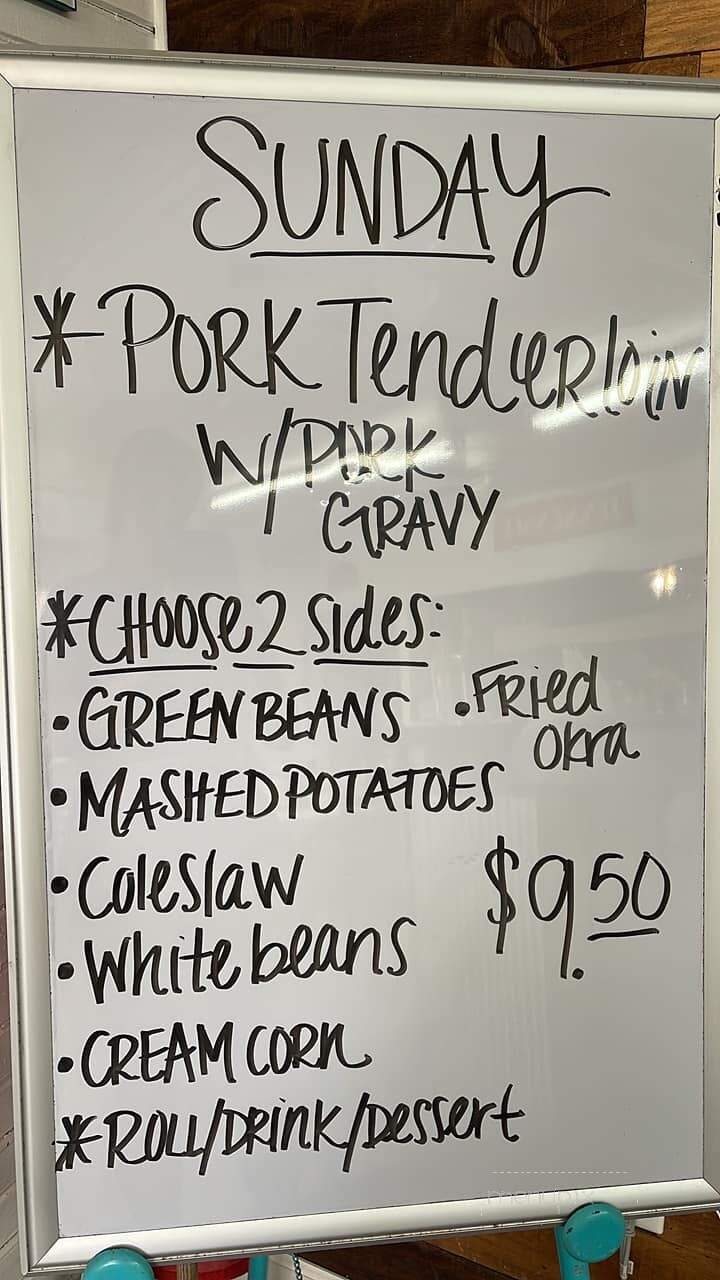 SUNDAY
* PORK Tenderloin
W/PORK
GRAVY
* CHOOSE 2 Sides:
• GREEN BEANS
• Fried
Okra
• MASHED POTATOES
• Coleslaw
$9.50
• White beans
• CREAM CORN
* ROLL/DRINK/Dessert